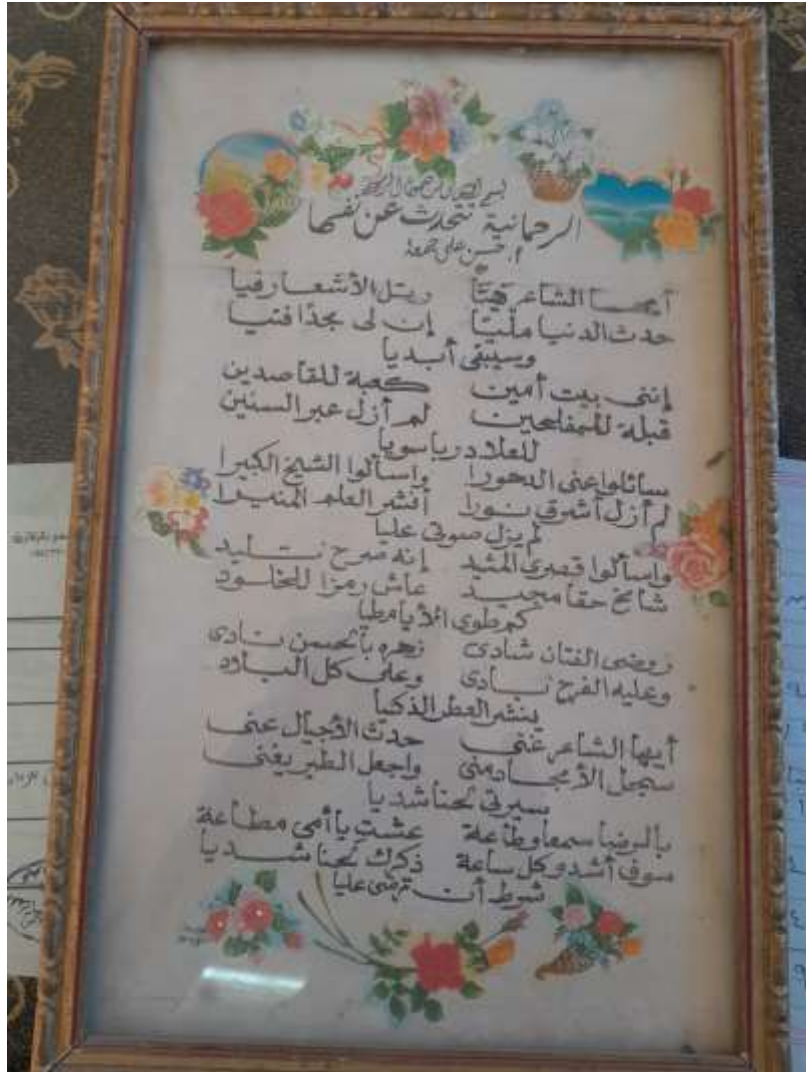 بسم الله الرحمن الرحيم
الرحمانية تتحدث عن نفسها
أ. حسن على جمعة
أيها الشاعر هيّا رتل الأشعار فيا
حدث الدنيا مليّا إن لى مجدًا فتيا
وسيبقى أبديا
إننى بيت أمين كعبة للقاصدين
قبلة للمفلحين لم أزل عبر السنين
للعلا دربا سويا
سائلوا عنى الدهورا واسألوا الشيخ الكبيرا
لم أزل أشرق نورا أنشر العلم المنيرا
لم يزل صوتى عليا
واسألوا قصرى المشيد إنه صرح تليد
شامخ حقا مجيد عاش رمزا للخلود
كم طوى الأيام طيا
روضى الفتان شادى زهره بالحسن نادى
وعليه الفرح بادى وعلى كل البلاد
ينشر العطر الذكيا
أيها الشاعر غنى حدث الأجيال عنى
سجل الأمجاد منى واجعل الطير يغنى
سيرتى لحنا شديا
بالرضا سمعا وطاعة عشتِ يا أمى مطاعة
سوف أشدو كل ساعة ذكرك لحنا شديا
شرط أن ترضى عليا